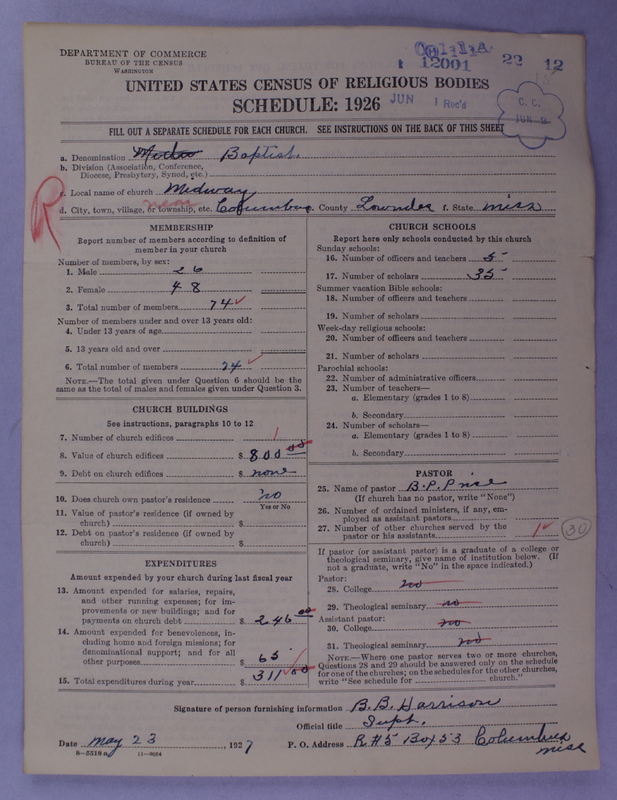 DEPARTMENT OF COMMERCE
BUREAU OF THE CENSUS
WASHINGTON
1 12001 22 12
UNITED STATES CENSUS OF RELIGIOUS BODIES
SCHEDULE: 1926
JUN 1 Rec'd
C. C.
JUN
FILL OUT A SEPARATE SCHEDULE FOR EACH CHURCH. SEE INSTRUCTIONS ON THE BACK OF THIS SHEET
a. Denomination Baptist
b. Division (Association, Conference,
Diocese, Presbytery, Synod, etc.)
c. Local name of church Midway
near
d. City, town, village, or township, etc. Columbus e. County Lowndes f. State miss
R
MEMBERSHIP
Report number of members according to definition of
member in your church
Number of members, by sex:
1. Male 26
2. Female 48
3. Total number of members 74
Number of members under and over 13 years old:
4. Under 13 years of age
5. 13 years old and over
6. Total number of members 74
NOTE.—The total given under Question 6 should be the
same as the total of males and females given under Question 3.
CHURCH BUILDINGS
See instructions, paragraphs 10 to 12
7. Number of church edifices 1
8. Value of church edifices $ 800 00
9. Debt on church edifices $ none
10. Does church own pastor's residence no
Yes or No
11. Value of pastor's residence (if owned by
church) $
12. Debt on pastor's residence (if owned by
church) $
EXPENDITURES
Amount expended by your church during last fiscal year
13. Amount expended for salaries, repairs,
and other running expenses; for im-
provements or new buildings; and for
payments on church debt $ 246 00
14. Amount expended for benevolences, in-
cluding home and foreign missions; for
denominational support; and for all
other purposes $ 65
15. Total expenditures during year $ 311 00
CHURCH SCHOOLS
Report here only schools conducted by this church
Sunday schools:
16. Number of officers and teachers 5
17. Number of scholars 35
Summer vacation Bible schools:
18. Number of officers and teachers
19. Number of scholars
Week-day religious schools:
20. Number of officers and teachers
21. Number of scholars
Parochial schools:
22. Number of administrative officers
23. Number of teachers—
a. Elementary (grades 1 to 8)
b. Secondary
24. Number of scholars—
a. Elementary (grades 1 to 8)
b. Secondary
PASTOR
25. Name of pastor B. P. Price
(If church has no pastor, write "None")
26. Number of ordained ministers, if any, em-
ployed as assistant pastors
27. Number of other churches served by the
pastor or his assistants 1 30
If pastor (or assistant pastor) is a graduate of a college or
theological seminary, give name of institution below. (If
not a graduate, write "No" in the space indicated.)
Pastor:
28. College no
29. Theological seminary no
Assistant pastor:
30. College no
31. Theological seminary no
NOTE.—Where one pastor serves two or more churches,
Questions 28 and 29 should be answered only on the schedule
for one of the churches; on the schedules for the other churches,
write "See schedule for church."
Signature of person furnishing information B. B. Harrison
Official title Supt.
Date may 23, 1927 P. O. Address R#5 Box 53 Columbus
miss
8—5518a 11—9084